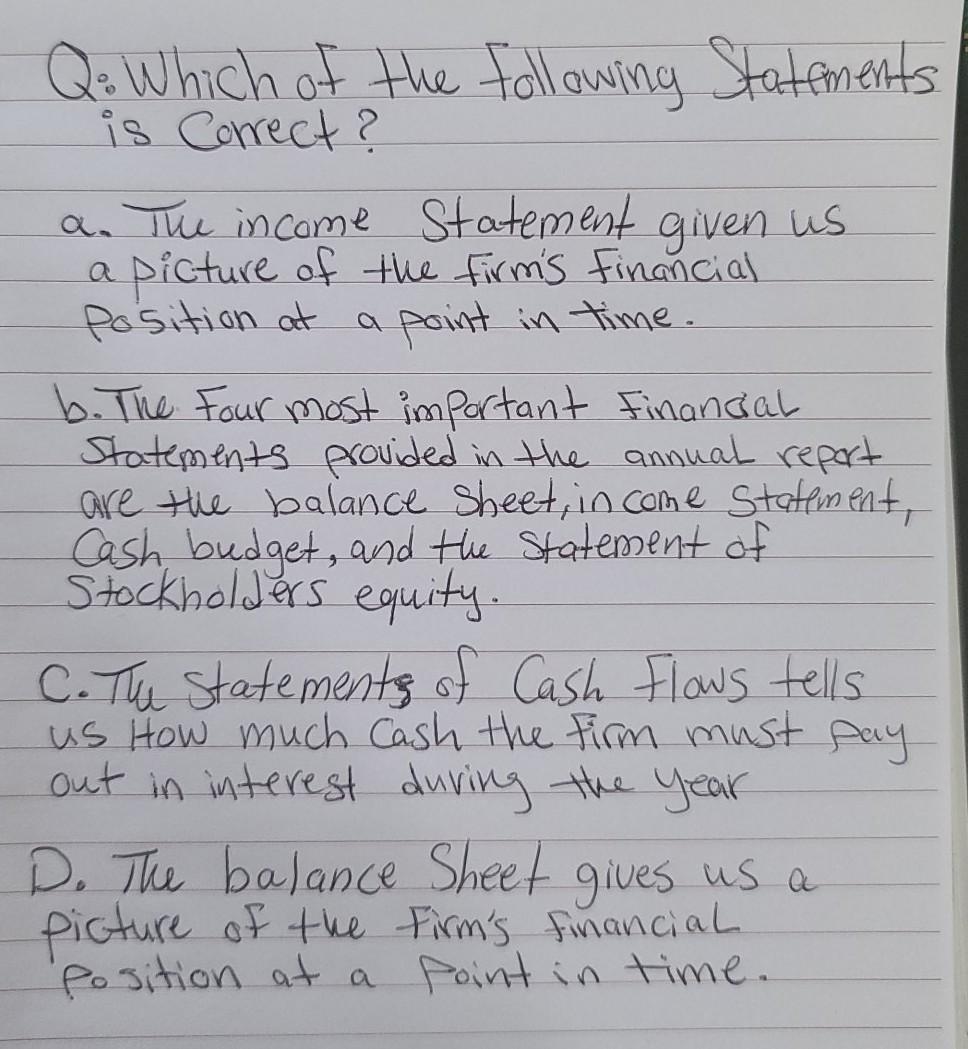 Q: Which of the following Statements
is Correct?
a. The income Statement given us
a picture of the firm's financial
Position at a point in time.
b. The Four most important Financial
Statements provided in the annual report
are the balance Sheet, income Statement,
Cash budget, and the Statement of
Stockholders equity.
C. The Statements of Cash Flows tells
us How much Cash the Firm must pay
out in interest during the year
D. The balance Sheet gives us a
picture of the Firm's financial
Position at a Point in time.